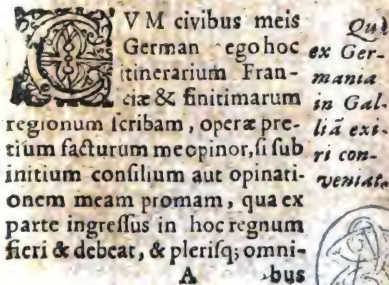 CVM civibus meis
German ego hoc
itinerarium Fran-
ciæ & finitimarum
regionum ſcribam, operæ pre-
tium facturum me opinor, ſi ſub
initium conſilium aut opinati-
onem meam promam, qua ex
parte ingreſſus in hoc regnum
fieri & debeat, & pleriſq; omni-
A bus
Quâ
ex Ger-
mania
in Gal-
liã exi-
ri con-
veniat.